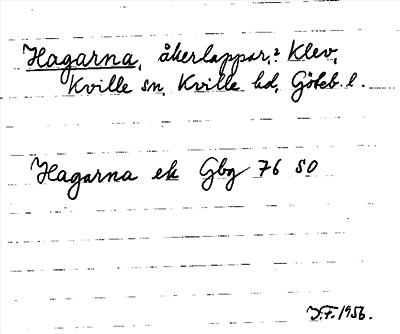 Hagarna, åkerlappar,? Klev,
Kville sn, Kville hd, Göteb. l.
Hagarna ek Gbg 76 SO
I.F. 1956.